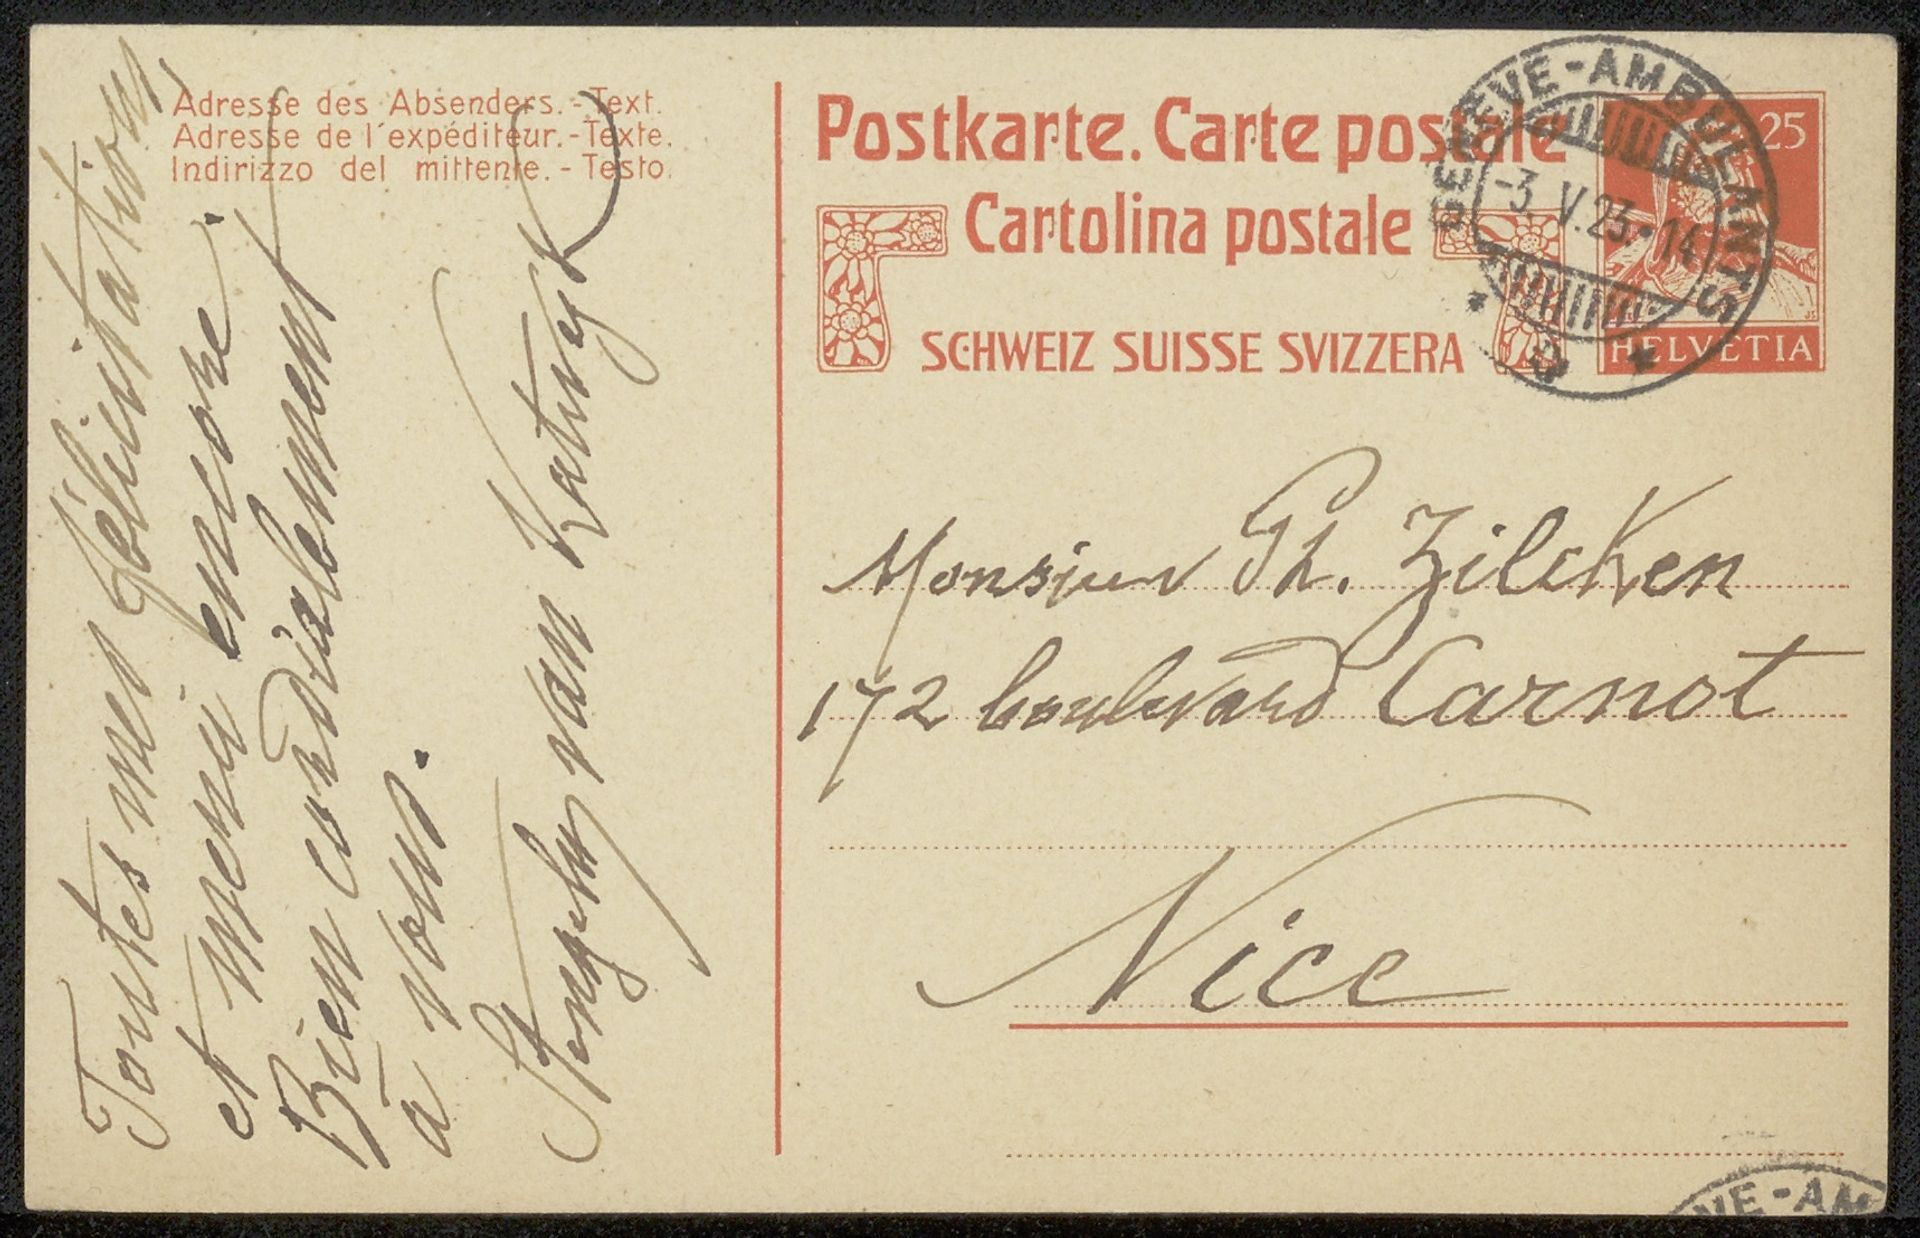 Adresse des Absenders. - Text.
Adresse de l'expéditeur. - Texte.
Indirizzo del mittente. - Testo.
Toutes mes félicitations,
et merci encore.
Bien cordialement
à vous.
van Katwyk
Postkarte. Carte postale
Cartolina postale
SCHWEIZ SUISSE SVIZZERA
GENÈVE-AMBULANTS
-3. V. 23.-14
25
HELVETIA
Monsieur Ph. Zilcken
172 boulevard Carnot
Nice
VE-AM